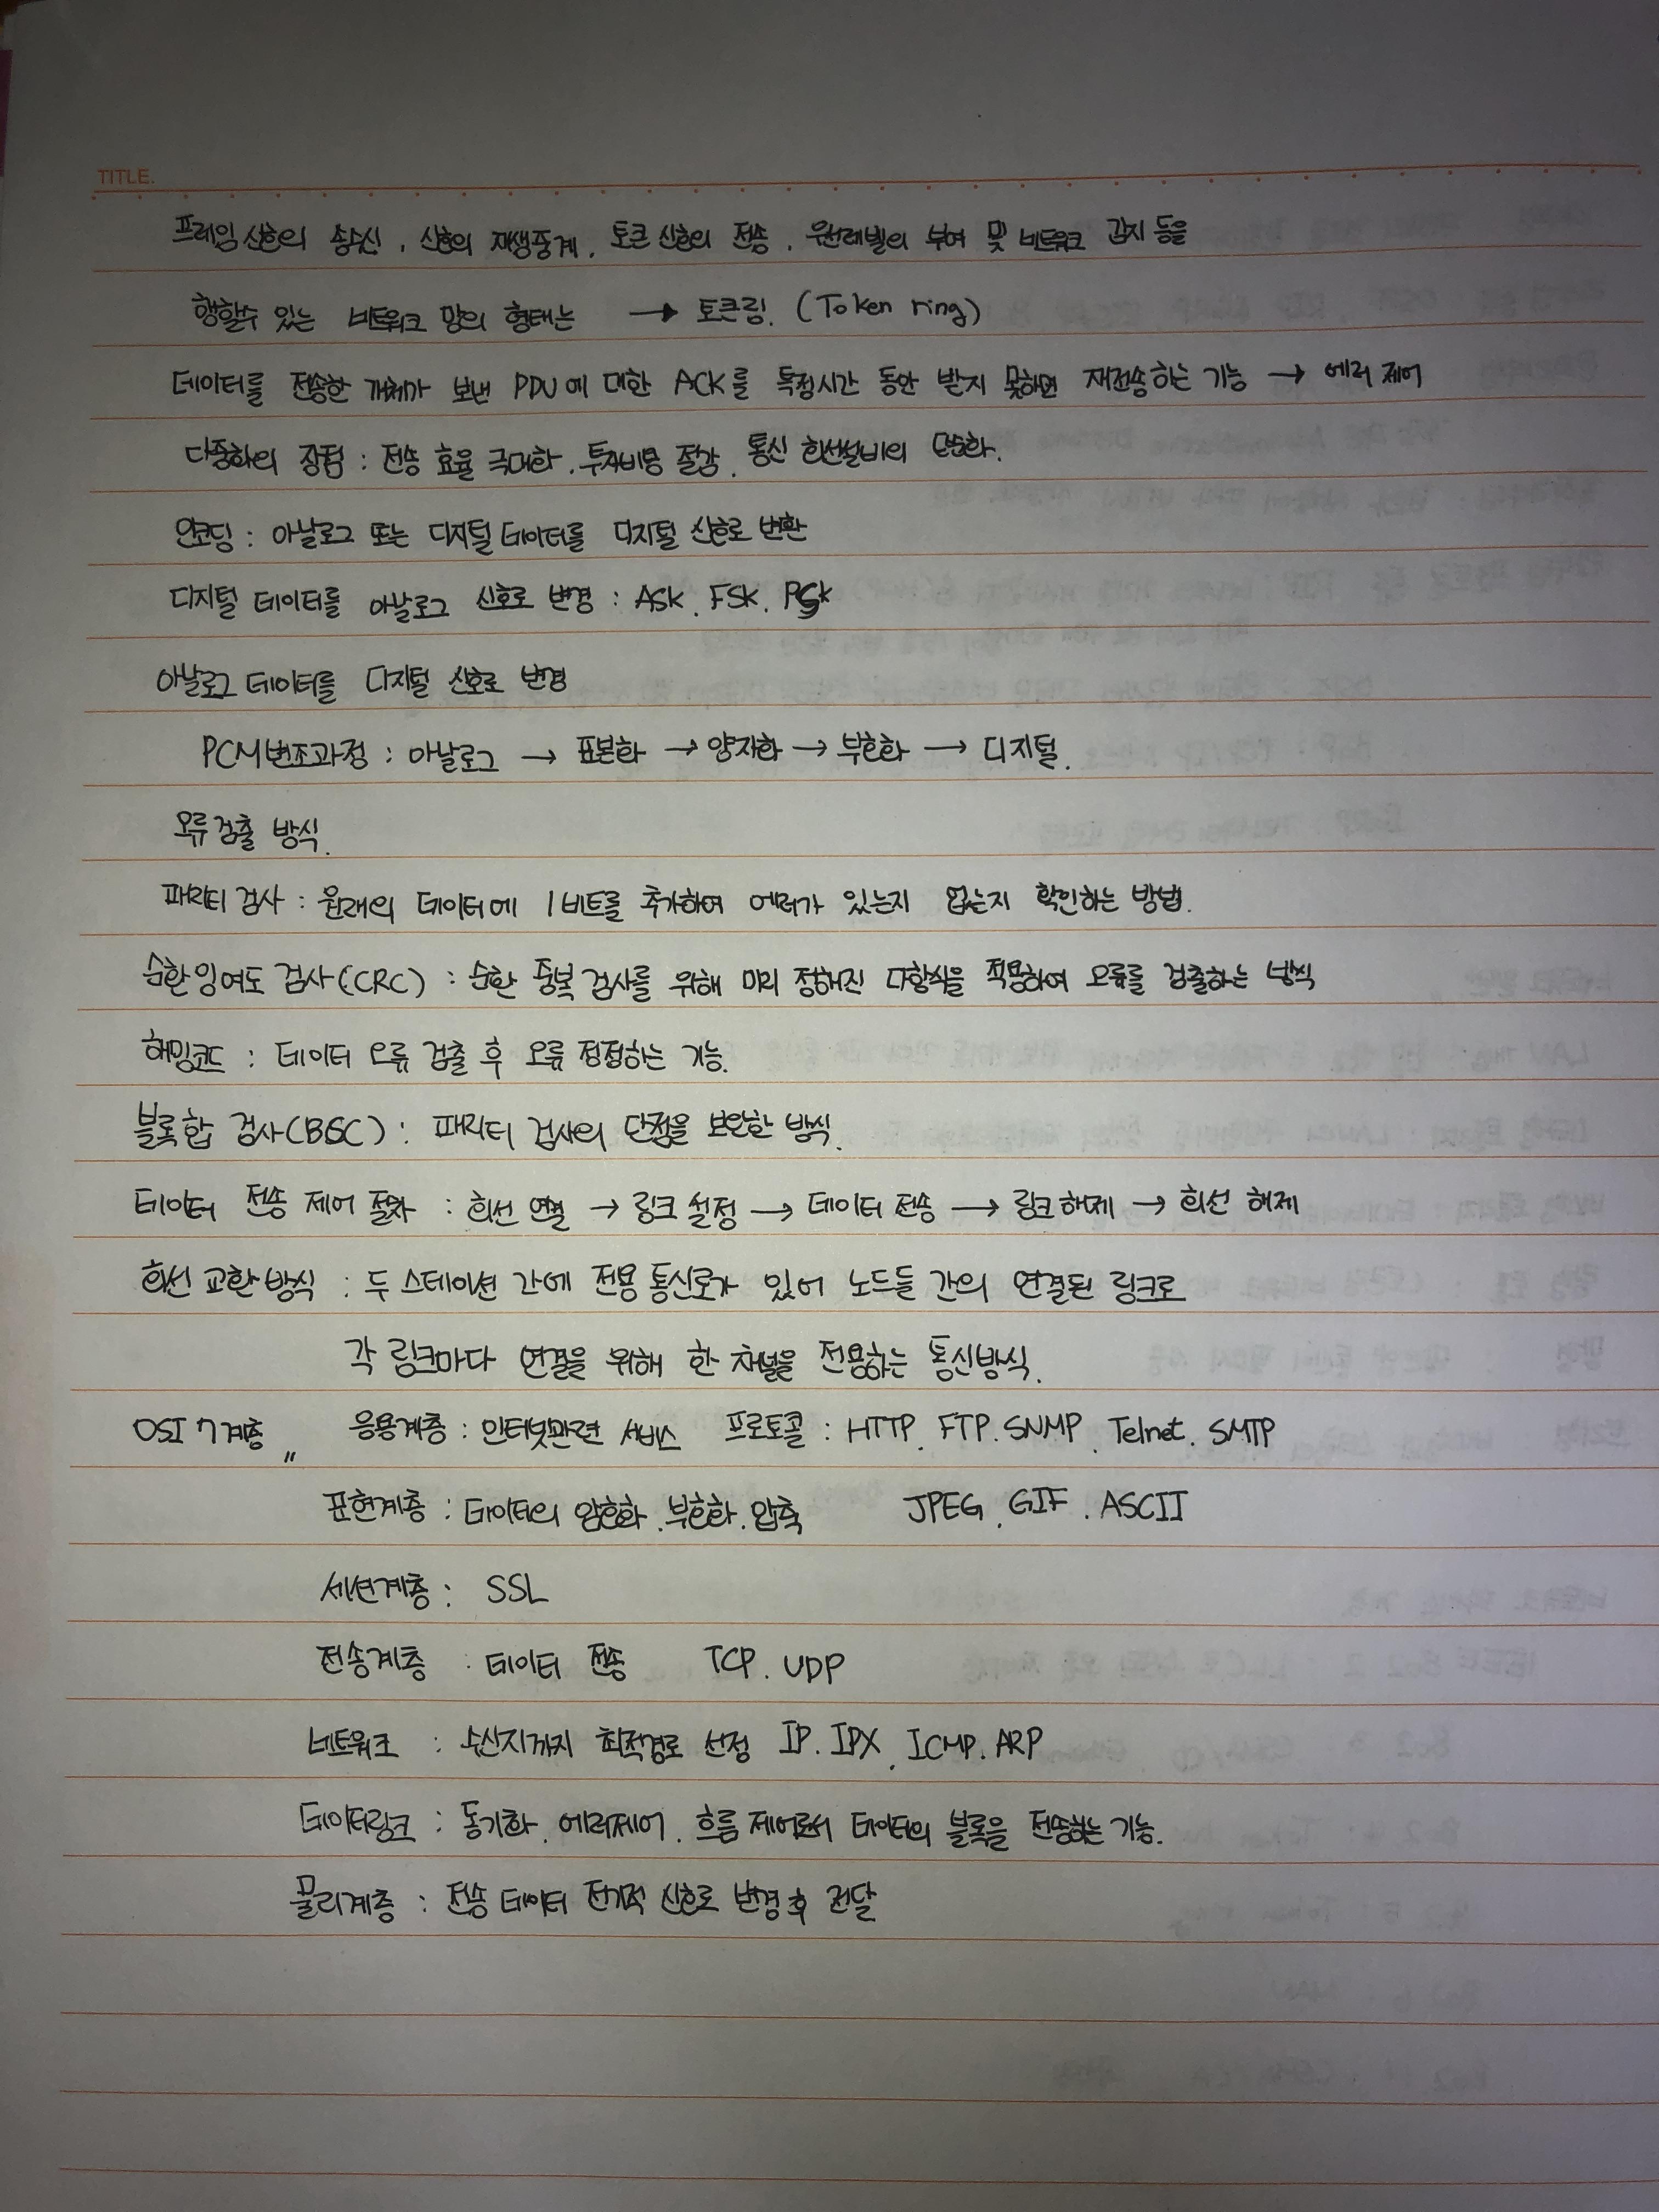 TITLE.
프레임 신호의 송수신, 신호의 재생중계, 토큰 신호의 전송, 원레벨의 부여 및 네트워크 감지 등을
행할수 있는 네트워크 망의 형태는 → 토큰링. (Token ring)
데이터를 전송한 개체가 보낸 PDU에 대한 ACK를 특정시간 동안 받지 못하면 재전송하는 기능 → 에러 제어
다중화의 장점 : 전송 효율 극대화, 투자비용 절감, 통신 회선설비의 단순화.
인코딩 : 아날로그 또는 디지털 데이터를 디지털 신호로 변환
디지털 데이터를 아날로그 신호로 변경 : ASK, FSK, PSK
아날로그 데이터를 디지털 신호로 변경
PCM변조과정 : 아날로그 → 표본화 → 양자화 → 부호화 → 디지털.
오류검출 방식.
패리티 검사 : 원래의 데이터에 1비트를 추가하여 에러가 있는지 없는지 확인하는 방법.
순환잉여도 검사(CRC) : 순환 중복 검사를 위해 미리 정해진 다항식을 적용하여 오류를 검출하는 방식
해밍코드 : 데이터 오류 검출 후 오류 정정하는 기능.
블록합 검사(BSC) : 패리티 검사의 단점을 보완한 방식.
데이터 전송 제어 절차 : 회선 연결 → 링크 설정 → 데이터 전송 → 링크 해제 → 회선 해제
회선 교환 방식 : 두 스테이션 간에 전용 통신로가 있어 노드들 간의 연결된 링크로
각 링크마다 연결을 위해 한 채널을 전용하는 통신방식.
OSI 7계층 〃 응용계층 : 인터넷관련 서비스 프로토콜 : HTTP, FTP, SNMP, Telnet, SMTP
표현계층 : 데이터의 암호화, 부호화, 압축 JPEG, GIF, ASCII
세션계층 : SSL
전송계층 : 데이터 전송 TCP, UDP
네트워크 : 수신지까지 최적경로 선정 IP, IPX, ICMP, ARP
데이터링크 : 동기화, 에러제어, 흐름 제어로서 데이터의 블록을 전송하는 기능.
물리계층 : 전송 데이터 전기적 신호로 변경 후 전달